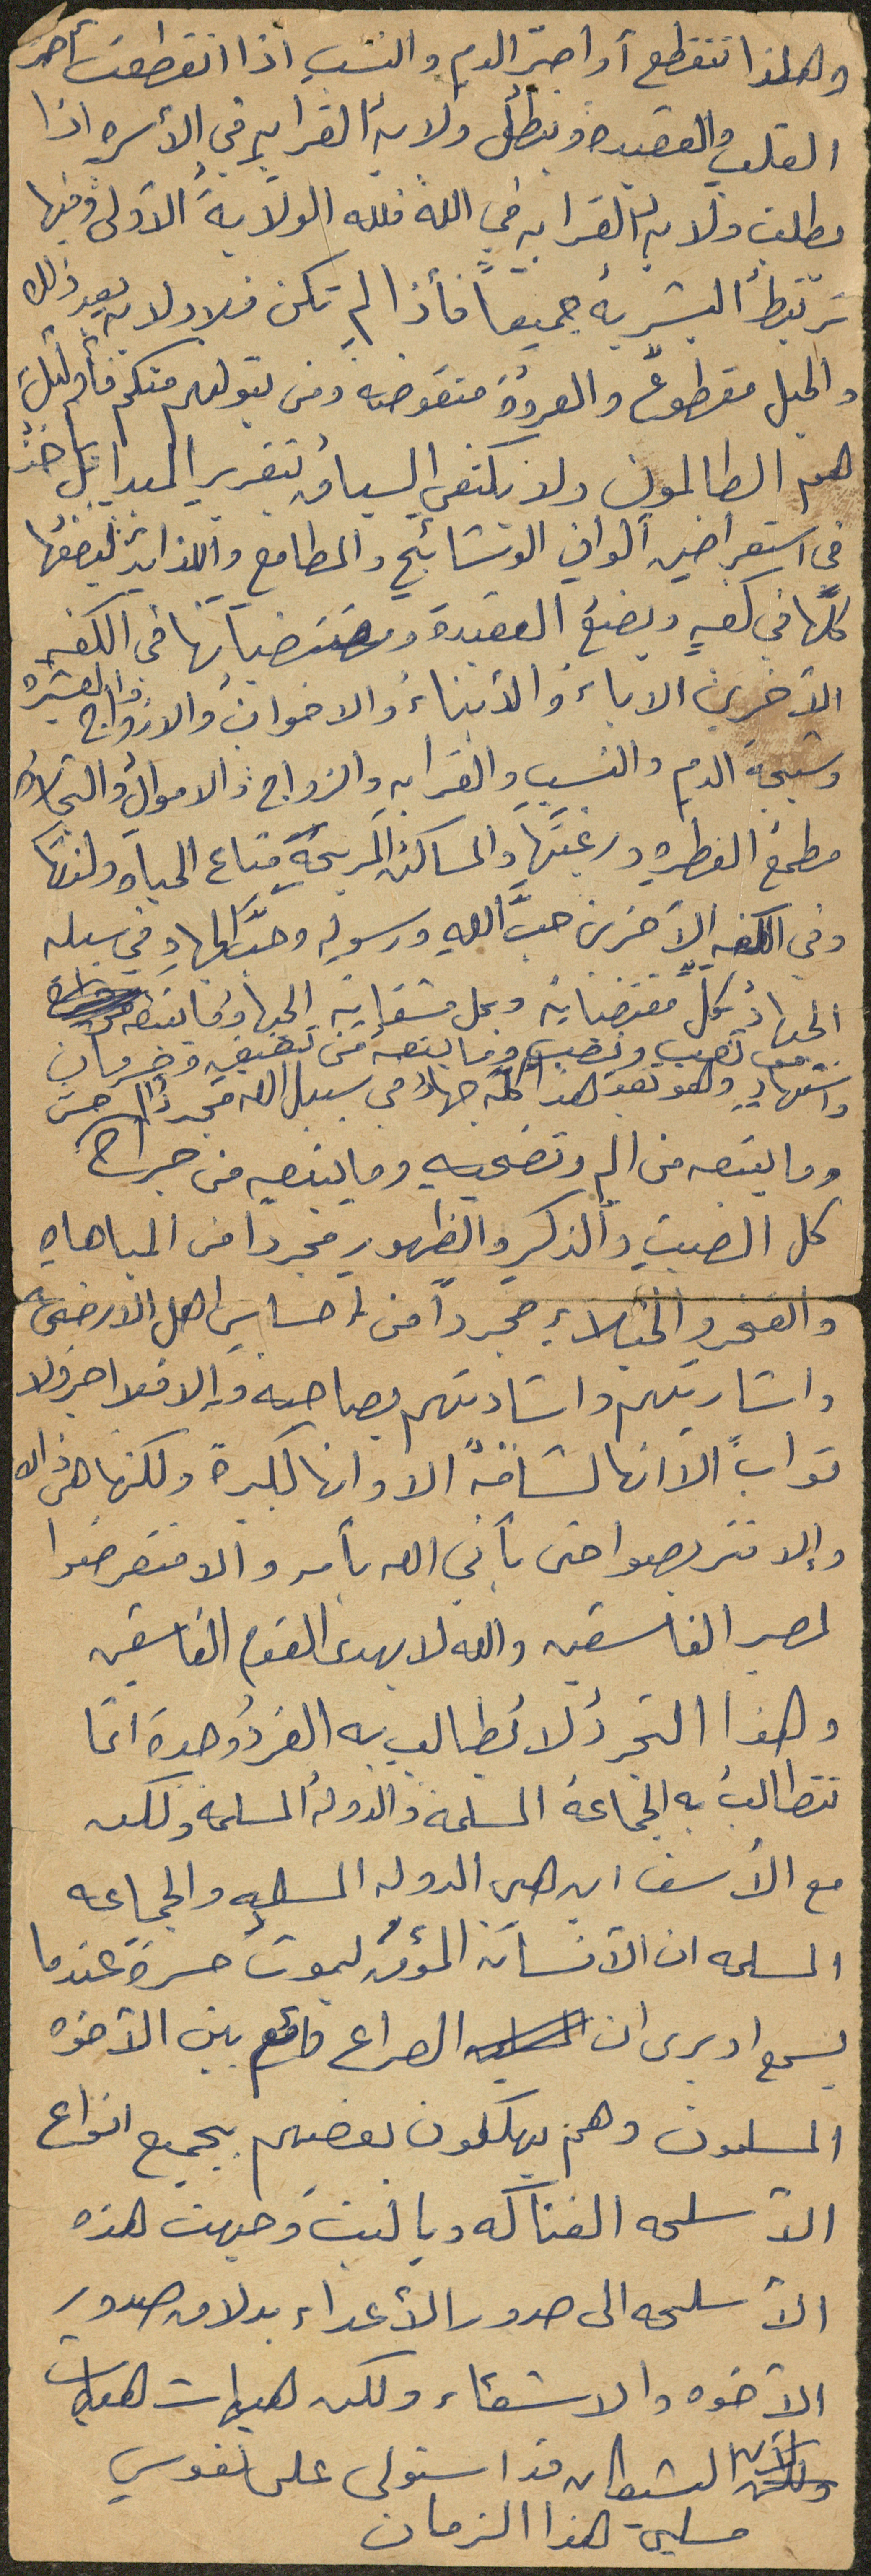 وهكذا تنقطع أواصر الدم والنسب اذا انقطعت أصرة
القلب والعقيده وتبطلُ ولايةُ القرابه في الأسره اذا
بطلت ولايه القرابه في الله فلله الولايةُ الأولى وفيها
ترتبطُ البشريهُ جميعاً فأذا لم تكن فلا ولايه بعد ذلك
والحبل مقطوعٌ والعروةُ منقوضه ومن يتولهم منكم فأولئك
هم الظالمون ولا يكتفي السياقُ بتقرير المبدأ بل ياخذُ
في استعراضِ ألوانِ الوشائجِ والمطامع واللذائذِ ليضعُها
كلَّها في كفهٍ ويضعُ العقيدة ومقتضياتها في الكفهِ
الأخرى الاباءُ والأبناءُ والاخوان والازواج والعشيره
وشيجةَ الدم والنسبِ والقرابهِ والزواج والاموالُ والتجارة
مطمعُ الفطرهِ ورغبتَها والمساكنُ المريحةِ متاع الحياه ولذتها
وفي الكفهِ الأخرى حبَّ اللهِ ورسولهِ وحبَّ الجهادِ في سبيله
الجهادُ بكلِّ مقتضياته وبكل مشقاته الجهاد وما يتبعه
من تعبٍ ونصبٍ وما يتبعهُ من تضييقٍ وحرمانٍ
واستشهادٍ وهو بعد هذا كلِّه جهادٌ في سبيل الله مجرداً من
وما يتبعه من الم وتضحيهٍ وما يتبعه من جراح
كل الصيتِ والذكرِ والظهورِ مجرداً من المباهاه
والفخر والخيلاءِ مجرداً من احساسِ اهل الارض به
واشارتهم واشادتهم بصاحبه وإلا فلا اجر ولا
ثوابَ الا انها لشاقةٌ الا وانها لكبيرة ولكنها هي ذاك
وإلا فتربصوا حتى يأتي الله بأمره والا فتعرضوا
لمصير الفاسقين والله لا يهدى القوم الفاسقين
وهذا التجردُ لا يُطالب به الفردُ وحدة انما
تتطالبُ به الجماعهُ المسلمة والدولهُ المسلمة ولكن
مع الأسف اين هي الدوله المسلمه والجماعه
المسلمه ان الأنسانَ المؤمنُ ليموتُ حسرةً عندما
يسمع او يرى ان الصراع قائم بين الأخوه
المسلمون وهم يهلكون بعضهم بجميع انواع
الأسلحه الفتاكه ويا ليت وجهت هذه
الأسلحه الى صدور الأعداء بدلا من صدور
الأخوه والاشقاء ولكن هيهات هيهات
لأن الشيطان قد استولى على نفوس
مسلمى هذا الزمان